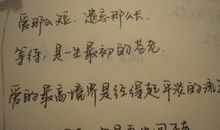 爱那么短，遗忘那么长，
等待，是一生最初的苍老，
爱的最高境界是经得起平淡的流